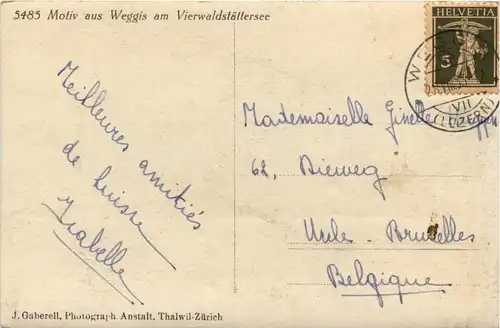 5485 Motiv aus Weggis am Vierwaldstättersee
HELVETIA
5
VII
(LUZERN)
Meilleures amitiés
de Suisse
Isabelle
Mademoiselle Ginette
62, Bieweg
Uccle - Bruxelles
Belgique
J. Gaberell, Photograph. Anstalt, Thalwil-Zürich